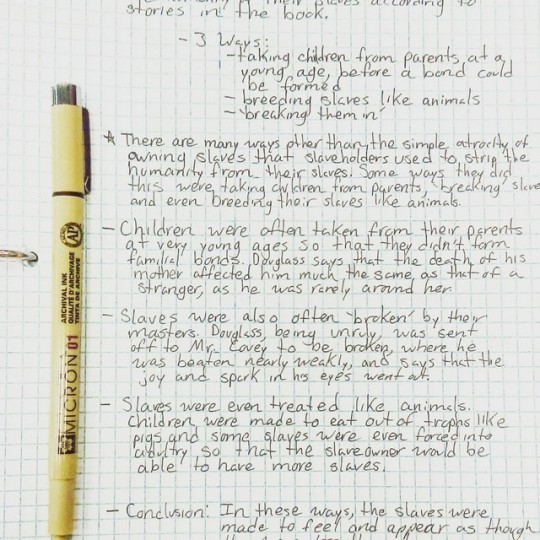 their slaves according to
stories in the book.
- 3 Ways:
- taking children from parents, at a
young age, before a bond could
be formed
- breeding slaves like animals
- 'breaking them in'
* There are many ways other than the simple atrocity of
owning slaves that slaveholders used to strip the
humanity from their slaves. Some ways they did
this were, taking children from parents, 'breaking' slave
and even breeding their slaves like animals.
- Children were often taken from their parents
at very young ages so that they didn't form
familial bonds. Douglass says that the death of his
mother affected him much the same, as that of a
stranger, as he was rarely around her.
- Slaves were also often 'broken' by their
masters. Douglass, being unruly, was sent
off to Mr. Covey to be broken, where he
was beaten nearly weakly, and says that the
joy and spark in his eyes went out.
- Slaves were even treated like animals.
Children were made to eat out of trophs like
pigs and some slaves were even forced into
adultry so that the slaveowner would be
able to have more slaves.
- Conclusion: In these ways, the slaves were
made to feel and appear as though
MICRON 01
ARCHIVAL INK
QUALITÉ D'ARCHIVAGE
TINTA DE ARCHIVE
AP